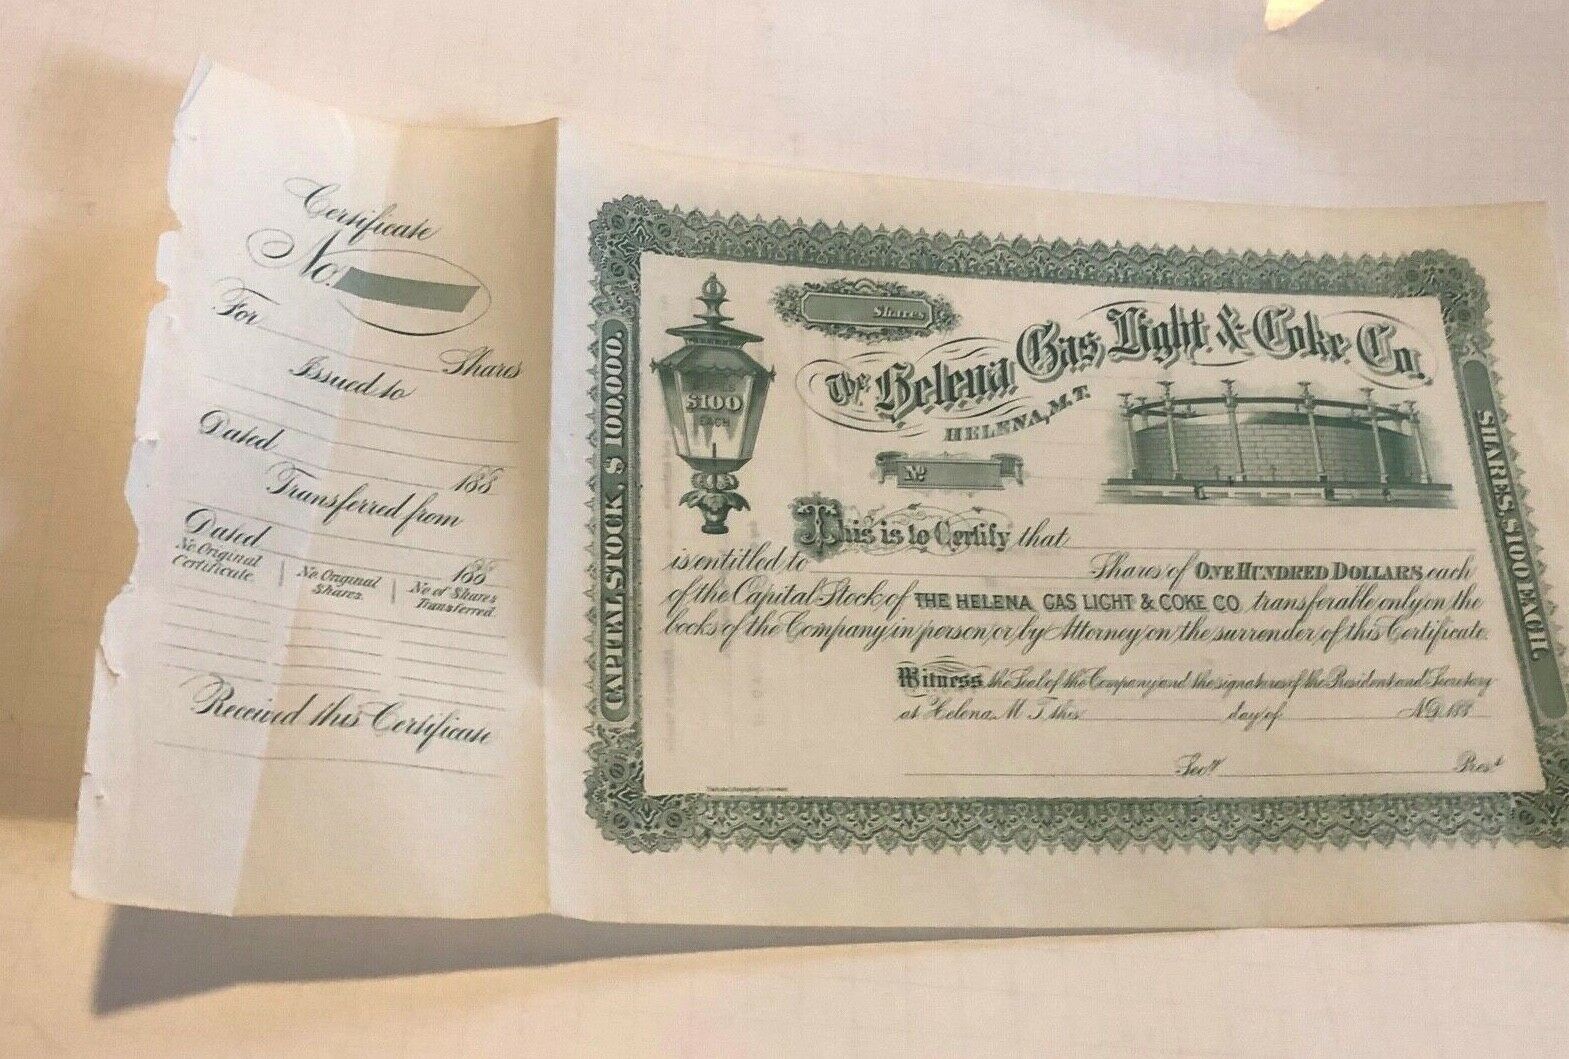 Certificate
No.
For
Shares
Issued to
Dated 188
Transferred from
Dated 188
No. Original Certificate.
No. Original Shares.
No. of Shares Transferred.
Received this Certificate
CAPITAL STOCK, $ 100,000.
Shares
$100
EACH
The Helena Gas Light & Coke Co.
HELENA, M.T.
No
This is to Certify that
is entitled to Shares of ONE HUNDRED DOLLARS each
of the Capital Stock of THE HELENA GAS LIGHT & COKE CO. transferable only on the
books of the Company in person or by Attorney on the surrender of this Certificate.
Witness the Seal of the Company and the signatures of the President and Secretary
at Helena, M.T. this day of A.D. 188
Secy. Prest.
SHARES, $100 EACH.